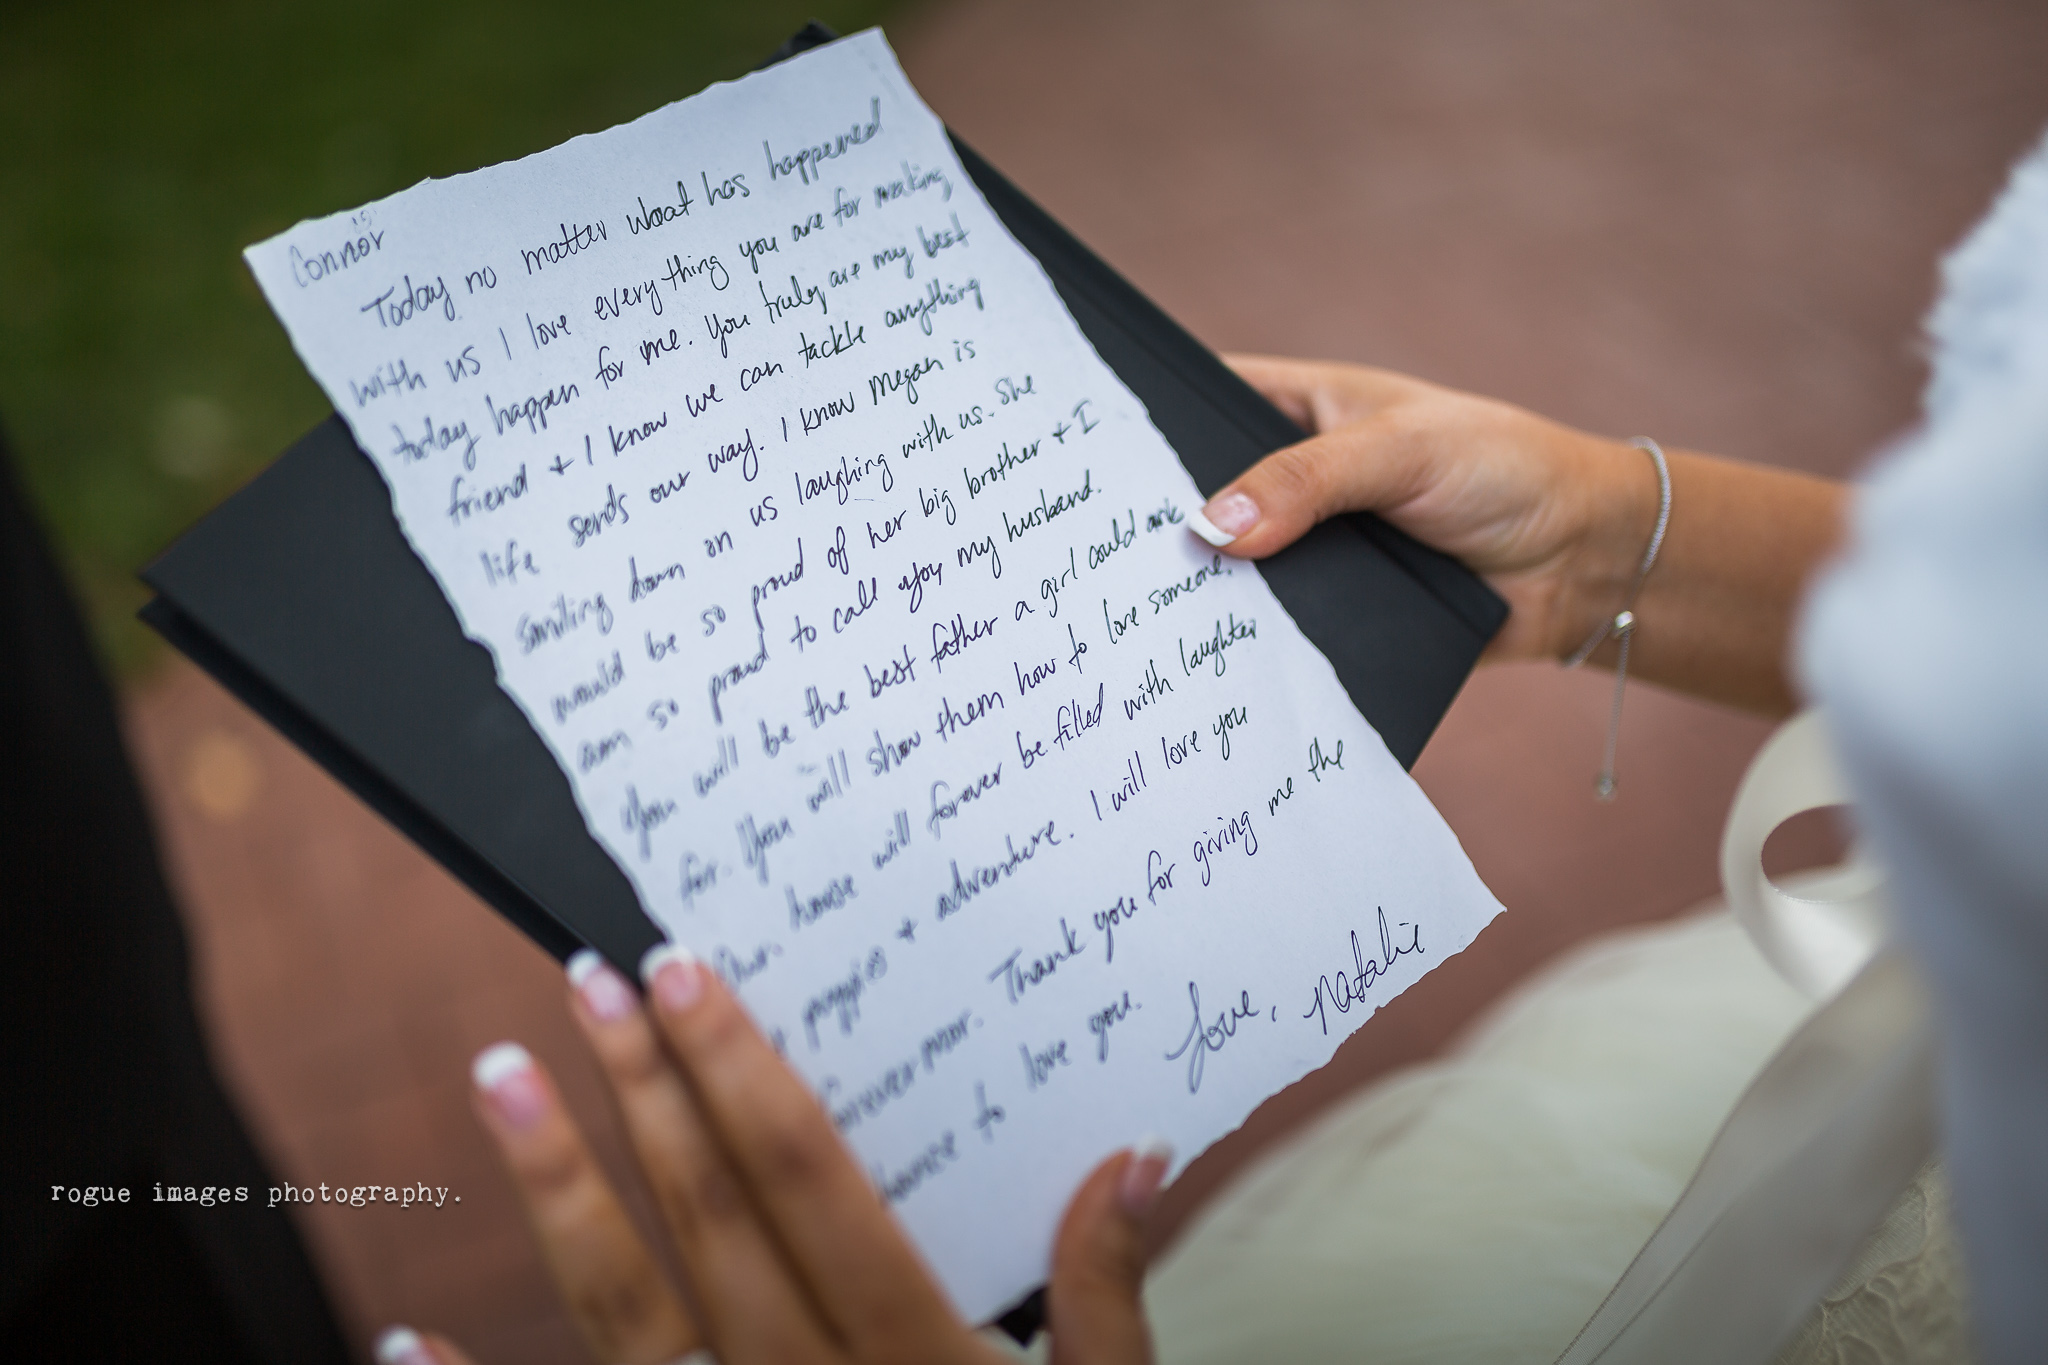 Connor
Today no matter what has happened
with us I love everything you are for making
today happen for me. You truly are my best
friend + I know we can tackle anything
life sends our way. I know Megan is
smiling down on us laughing with us. She
would be so proud of her big brother + I
am so proud to call you my husband.
You will be the best father a girl could ask
for. You will show them how to love someone.
Our house will forever be filled with laughter
puppies + adventure. I will love you
forevermore. Thank you for giving me the
chance to love you.
Love, Natalie
rogue images photography.